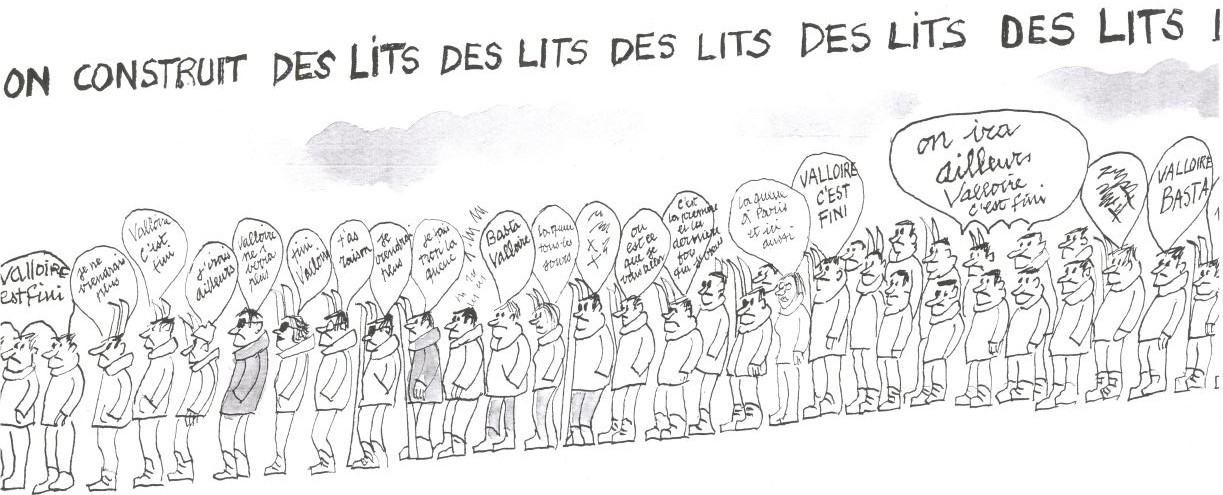 ON CONSTRUIT DES LiTS DES LITS DES LITS DES LiTS DES LITS
VALLOIRE
EST FiNi
je ne
viendrai
plus
Valloire
c'est
fini
j'irais
ailleurs
Valloire
ne
plus
fini
Valloire
t'as
raison
je
plus
je suis
la
queue
BASTA
Valloire
la queue
tous les
jours
X X
X X
ou
est ce
que je
vous
c'est
la première
et la
dernière
la queue
à Paris
et ici
aussi
VALLOIRE
C'EST
FINI
on ira
ailleurs
Valloire
c'est fini
VALLOIRE
BASTA